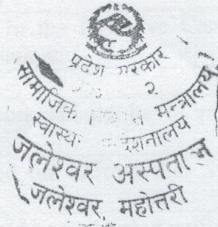 प्रदेश सरकार
सामाजिक मन्त्रालय
२
स्वास्थ्य
जलेश्वर अस्पताल
जलेश्वर, महोत्तरी